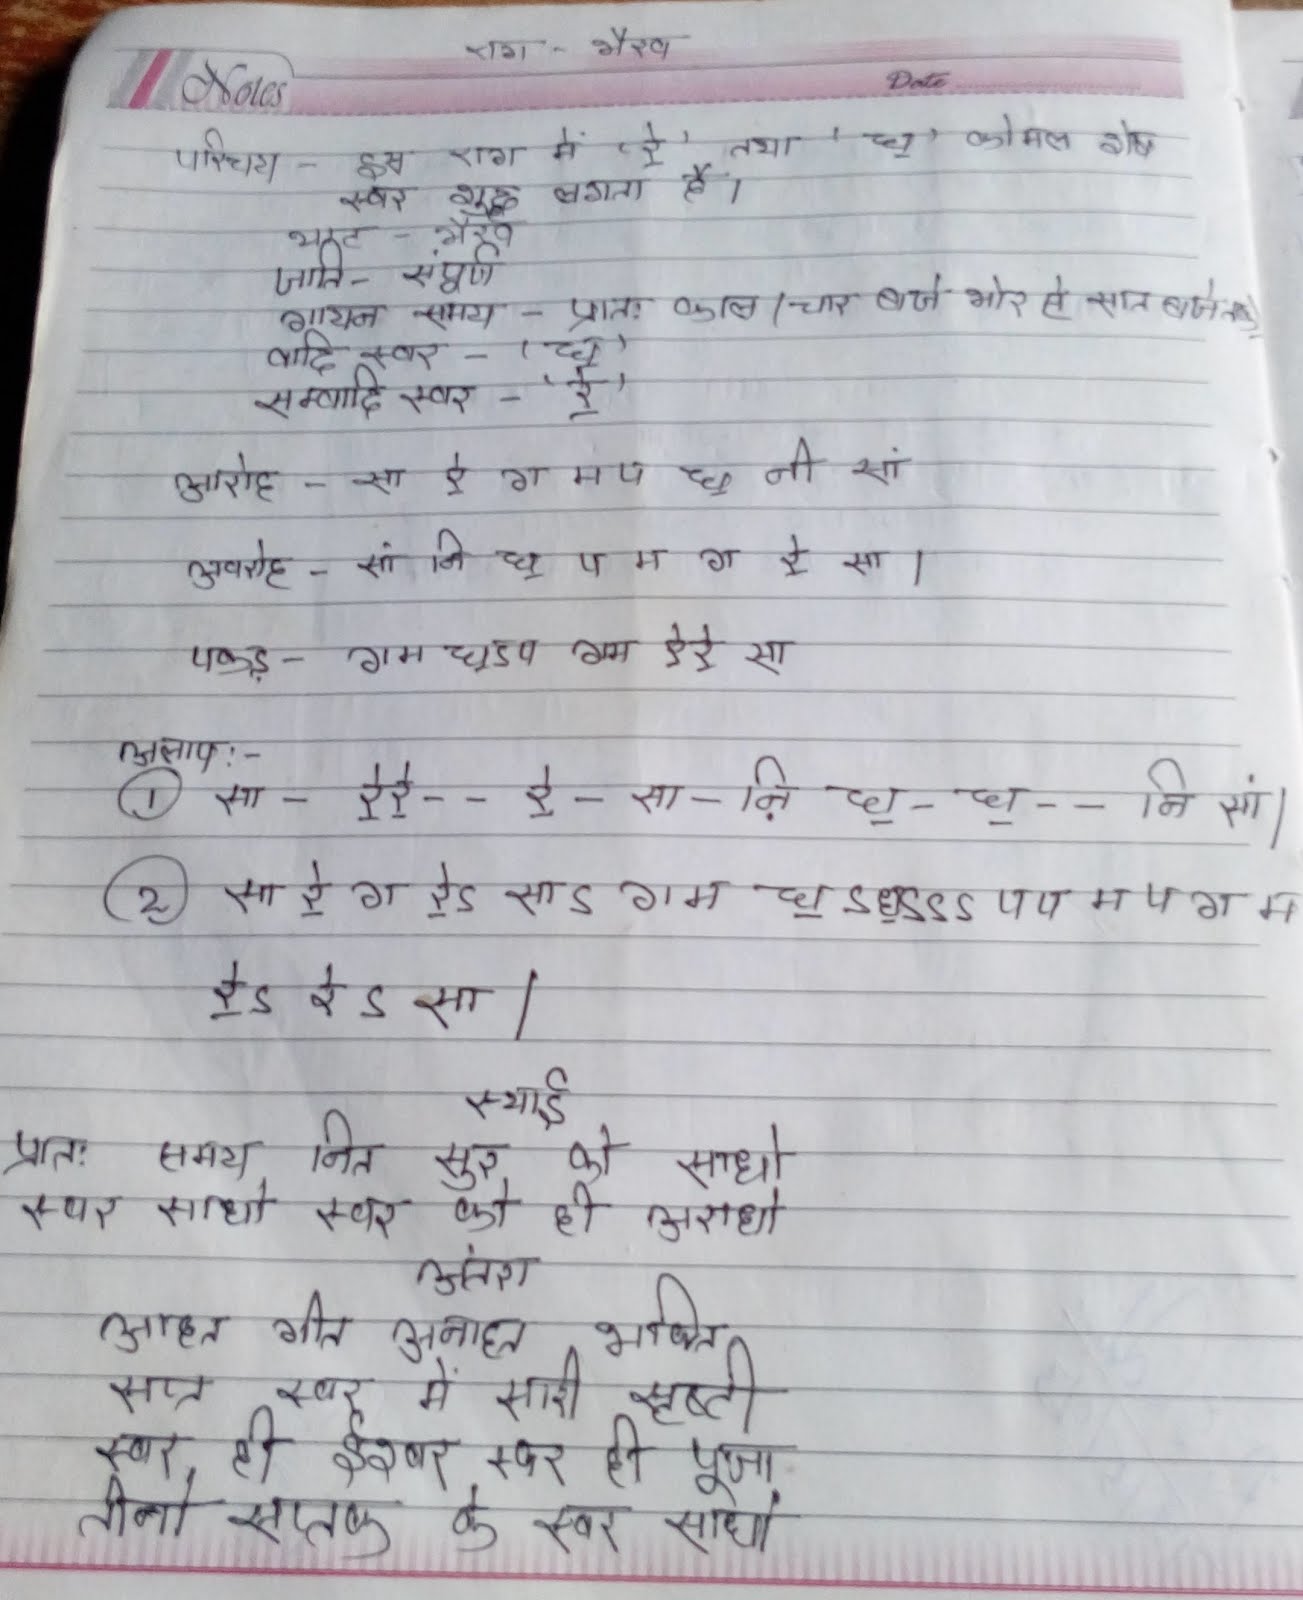 राग - भैरव
Notes
Date
परिचय - इस राग में 'रे॒' तथा 'ध॒' कोमल शेष
स्वर शुद्ध लगता है।
थाट - भैरव
जाति - संपूर्ण
गायन समय - प्रातः काल / चार बजे भोर से सात बजे तक
वादि स्वर - 'ध॒'
सम्वादि स्वर - 'रे॒'
आरोह - सा रे॒ ग म प ध॒ नी सां
अवरोह - सां नि ध॒ प म ग रे॒ सा।
पकड़ - गम ध॒ऽप गम रे॒रे॒ सा
अलाप :-
① सा - रे॒रे॒ - - रे॒ - सा - नि़ ध॒ - ध॒ - - नि सां।
② सा रे॒ ग रे॒ऽ साऽ गम ध॒ ऽध॒ऽऽऽ पप म प ग म
रे॒ऽ रे॒ऽ सा।
स्थाई
प्रातः समय नित सुर को साधो
स्वर साधो स्वर को ही अराधो
अंतरा
आहत गीत अनाहत भक्ति
सप्त स्वर में सारी सृष्टी
स्वर ही ईश्वर स्वर ही पूजा
तीनो सप्तक के स्वर साधो